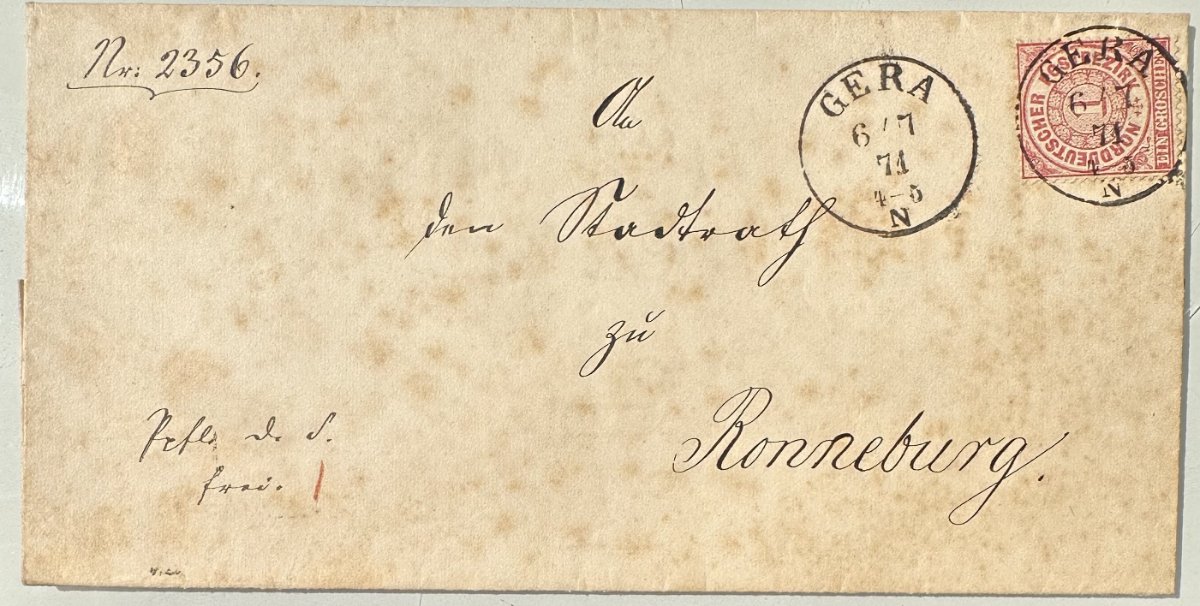 Nr: 2356.
An
den Stadtrath
zu
Ronneburg.
d. S.
frei.
GERA
6/7
71
4-5
N
NORDDEUTSCHER POSTBEZIRK
1
EIN GROSCHEN
GERA
6/7
71
4-5
N